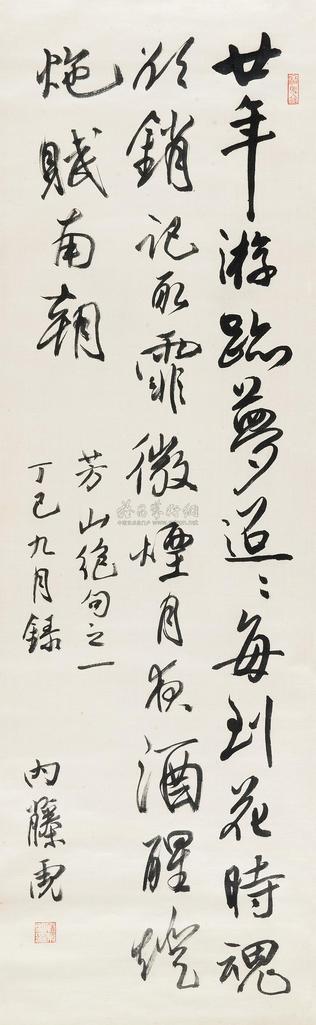 廿年游跡夢迢々每到花時魂
欲銷記取霏微煙月夜酒醒燈
灺賦南朝
芳山絕句之一
丁巳九月錄
內藤虎